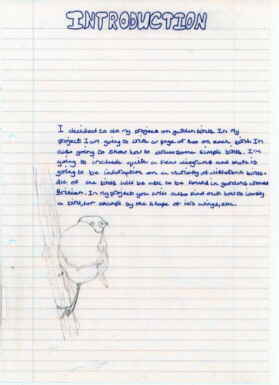 INTRODUCTION
I decided to do my project on garden birds. In my
project I am going to write a page or two on each bird. Im
also going to show how to draw some simple birds. I'm
going to include quite a few diagrams and there is
going to be information on a variety of different birds.
All of the birds will be able to be found in gardens around
Britain. In my project you will also find out how to identify
a bird, for example by the shape of its wings, etc.